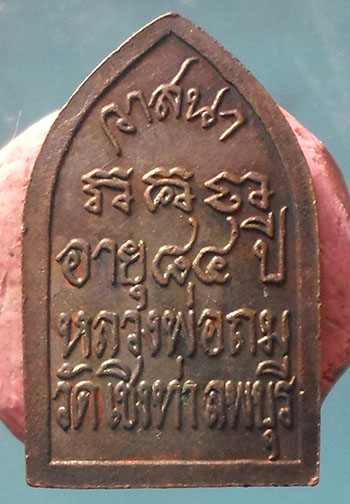 วาสนา
อายุ ๘๔ ปี
หลวงพ่อถม
วัดเชิงท่า ลพบุรี